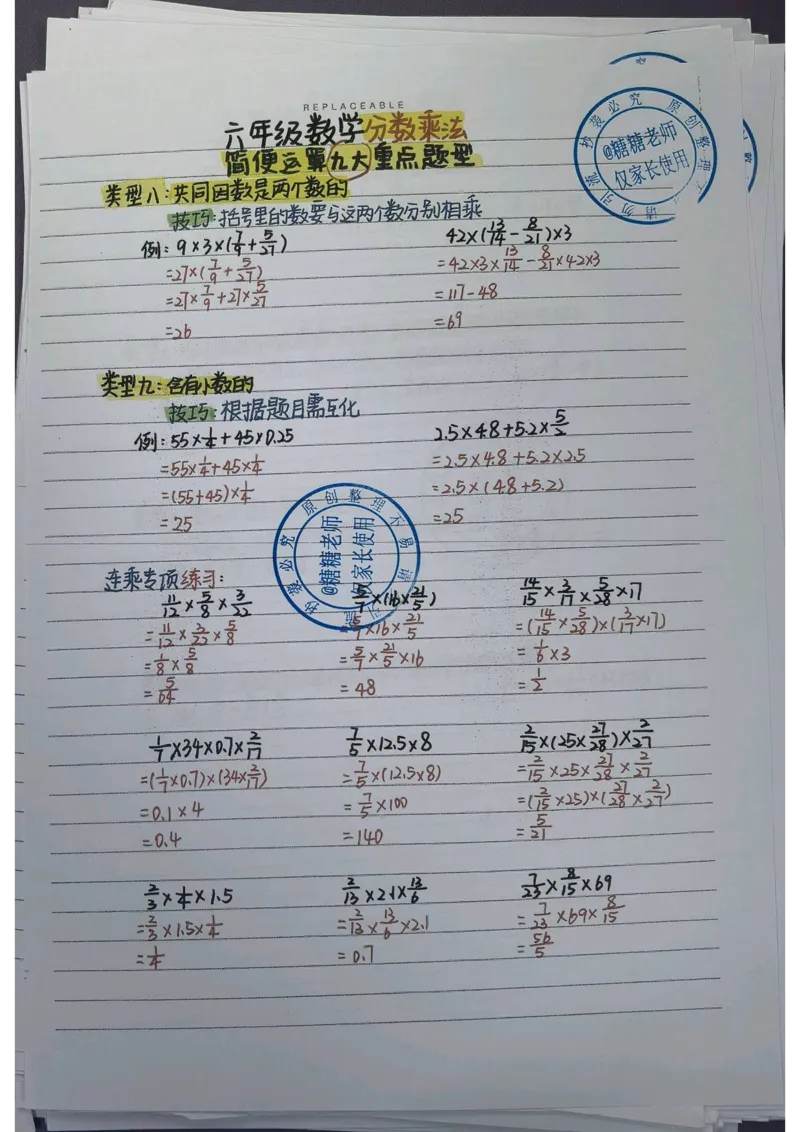 REPLACEABLE
六年级数学分数乘法
简便运算九大重点题型
抄袭必究 原创整理不易 请勿引流
@糖糖老师
仅家长使用
类型八:共同因数是两个数的
技巧:括号里的数要与这两个数分别相乘
例: 9×3×(7/9+5/27)
=27×(7/9+5/27)
=27×7/9+27×5/27
=26
42×(13/14-8/21)×3
=42×3×13/14-8/21×42×3
=117-48
=69
类型九:含有小数的
技巧:根据题目需互化
例: 55×1/4+45×0.25
=55×1/4+45×1/4
=(55+45)×1/4
=25
2.5×4.8+5.2×5/2
=2.5×4.8+5.2×2.5
=2.5×(4.8+5.2)
=25
抄袭必究 原创整理不易 请勿引流
@糖糖老师
仅家长使用
连乘专项练习:
11/12×5/8×3/22
=11/12×3/22×5/8
=1/8×5/8
=5/64
5/7×(16×21/5)
=5/7×16×21/5
=5/7×21/5×16
=48
14/15×3/17×5/28×17
=(14/15×5/28)×(3/17×17)
=1/6×3
=1/2
1/7×34×0.7×2/17
=(1/7×0.7)×(34×2/17)
=0.1×4
=0.4
7/5×12.5×8
=7/5×(12.5×8)
=7/5×100
=140
2/15×(25×27/28)×2/27
=2/15×25×27/28×2/27
=(2/15×25)×(27/28×2/27)
=5/21
2/3×1/4×1.5
=2/3×1.5×1/4
=1/4
2/13×2.1×13/6
=2/13×13/6×2.1
=0.7
7/23×8/15×69
=7/23×69×8/15
=56/5